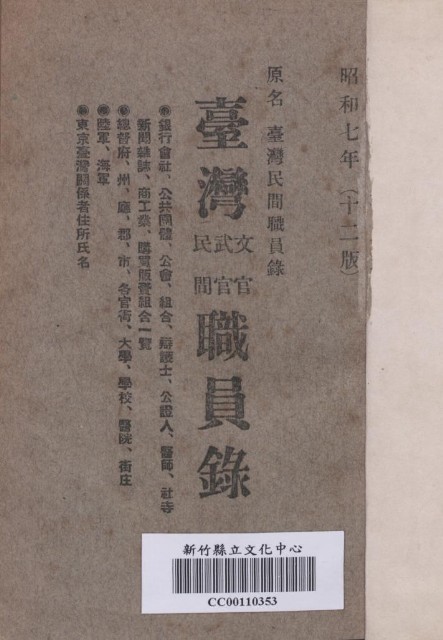 昭和七年(十二版)
原名 臺灣民間職員錄
臺灣 文官 武官 民間 職員錄
銀行會社、公共團體、公會、組合、辯護士、公證人、醫師、社寺
新聞雜誌、商工業、購買販賣組合一覽
總督府、州、廳、郡、市、各官衙、大學、學校、醫院、街庄
陸軍、海軍
東京臺灣關係者住所氏名
新竹縣立文化中心
CC00110353